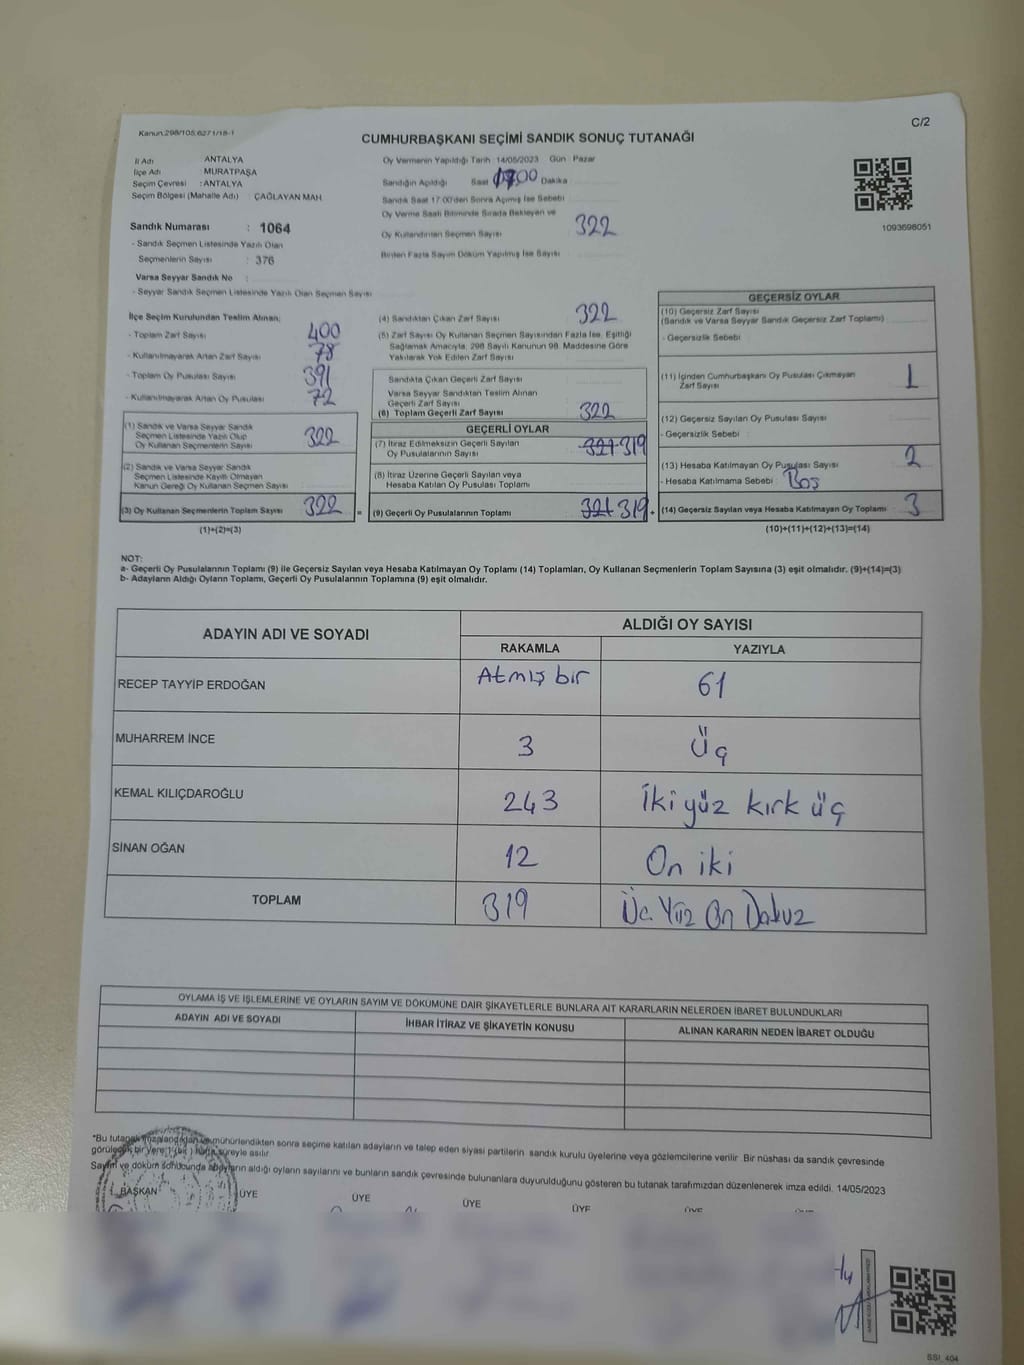 Kanun:298/105,6271/18-1
C/2
CUMHURBAŞKANI SEÇİMİ SANDIK SONUÇ TUTANAĞI
İl Adı ANTALYA
İlçe Adı MURATPAŞA
Seçim Çevresi :ANTALYA
Seçim Bölgesi (Mahalle Adı) : ÇAĞLAYAN MAH.
Oy Vermenin Yapıldığı Tarih 14/05/2023 Gün Pazar
Sandığın Açıldığı Saat Dakika
Sandık Saat 17:00'den Sonra Açılmış İse Sebebi
Oy Verme Saati Bitiminde Sırada Bekleyen ve
Oy Kullandırılan Seçmen Sayısı 322
Birden Fazla Sayım Döküm Yapılmış İse Sayısı
1093698051
Sandık Numarası : 1064
- Sandık Seçmen Listesinde Yazılı Olan
Seçmenlerin Sayısı : 376
Varsa Seyyar Sandık No :
- Seyyar Sandık Seçmen Listesinde Yazılı Olan Seçmen Sayısı
İlçe Seçim Kurulundan Teslim Alınan;
- Toplam Zarf Sayısı 400
- Kullanılmayarak Artan Zarf Sayısı 78
- Toplam Oy Pusulası Sayısı 391
- Kullanılmayarak Artan Oy Pusulası 72
(1) Sandık ve Varsa Seyyar Sandık
Seçmen Listesinde Yazılı Olup
Oy Kullanan Seçmenlerin Sayısı 322
(2) Sandık ve Varsa Seyyar Sandık
Seçmen Listesinde Kayıtlı Olmayan
Kanun Gereği Oy Kullanan Seçmen Sayısı
(3) Oy Kullanan Seçmenlerin Toplam Sayısı 322
(1)+(2)=(3)
(4) Sandıktan Çıkan Zarf Sayısı 322
(5) Zarf Sayısı Oy Kullanan Seçmen Sayısından Fazla İse, Eşitliği
Sağlamak Amacıyla, 298 Sayılı Kanunun 98. Maddesine Göre
Yakılarak Yok Edilen Zarf Sayısı
Sandıkta Çıkan Geçerli Zarf Sayısı
Varsa Seyyar Sandıktan Teslim Alınan
Geçerli Zarf Sayısı
(6) Toplam Geçerli Zarf Sayısı 322
GEÇERLİ OYLAR
(7) İtiraz Edilmeksizin Geçerli Sayılan
Oy Pusulalarının Sayısı 321 319
(8) İtiraz Üzerine Geçerli Sayılan veya
Hesaba Katılan Oy Pusulası Toplamı
(9) Geçerli Oy Pusulalarının Toplamı 321 319
GEÇERSİZ OYLAR
(10) Geçersiz Zarf Sayısı
(Sandık ve Varsa Seyyar Sandık Geçersiz Zarf Toplamı)
- Geçersizlik Sebebi
(11) İçinden Cumhurbaşkanı Oy Pusulası Çıkmayan
Zarf Sayısı 1
(12) Geçersiz Sayılan Oy Pusulası Sayısı
- Geçersizlik Sebebi
(13) Hesaba Katılmayan Oy Pusulası Sayısı 2
- Hesaba Katılmama Sebebi : Boş
(14) Geçersiz Sayılan veya Hesaba Katılmayan Oy Toplamı 3
(10)+(11)+(12)+(13)=(14)
NOT:
a- Geçerli Oy Pusulalarının Toplamı (9) ile Geçersiz Sayılan veya Hesaba Katılmayan Oy Toplamı (14) Toplamları, Oy Kullanan Seçmenlerin Toplam Sayısına (3) eşit olmalıdır. (9)+(14)=(3)
b- Adayların Aldığı Oyların Toplamı, Geçerli Oy Pusulalarının Toplamına (9) eşit olmalıdır.
ADAYIN ADI VE SOYADI
ALDIĞI OY SAYISI
RAKAMLA YAZIYLA
RECEP TAYYİP ERDOĞAN Atmış bir 61
MUHARREM İNCE 3 üç
KEMAL KILIÇDAROĞLU 243 İki yüz kırk üç
SİNAN OĞAN 12 On iki
TOPLAM 319 Üç Yüz On Dokuz
OYLAMA İŞ VE İŞLEMLERİNE VE OYLARIN SAYIM VE DÖKÜMÜNE DAİR ŞİKAYETLERLE BUNLARA AİT KARARLARIN NELERDEN İBARET BULUNDUKLARI
ADAYIN ADI VE SOYADI İHBAR İTİRAZ VE ŞİKAYETİN KONUSU ALINAN KARARIN NEDEN İBARET OLDUĞU
*Bu tutanak imzalandıktan ve mühürlendikten sonra seçime katılan adayların ve talep eden siyasi partilerin sandık kurulu üyelerine veya gözlemcilerine verilir. Bir nüshası da sandık çevresinde
görülecek bir yere 1 (bir) hafta süreyle asılır.
Sayım ve döküm sonucunda adayların aldığı oyların sayılarını ve bunların sandık çevresinde bulunanlara duyurulduğunu gösteren bu tutanak tarafımızdan düzenlenerek imza edildi. 14/05/2023
BAŞKAN ÜYE ÜYE ÜYE ÜYE
SSI_404